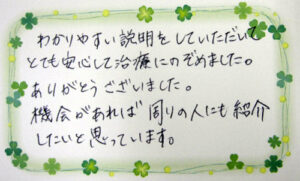 わかりやすい説明をしていただいて
とても安心して治療にのぞめました。
ありがとうございました。
機会があれば周りの人にも紹介
したいと思っています。